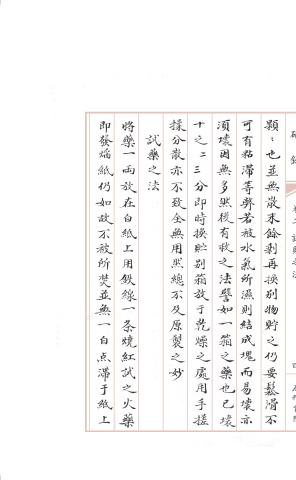 顆〻也並無散末餘剩再換別物貯之仍要鬆滑不
可有黏滯等弊若被水氣所濕則結成塊而易壞亦
須壞因無多然後有收之法譬如一箱之藥也已壞
十之二三分即時換貯別箱放于乾燥之處用手搓
揉分散亦不致全無用然總不及原製之妙
試藥之法
將藥一兩放在白紙上用鉄線一条燒紅試之火藥
即發焔紙仍如故不被所焚並無一白点滯于紙上